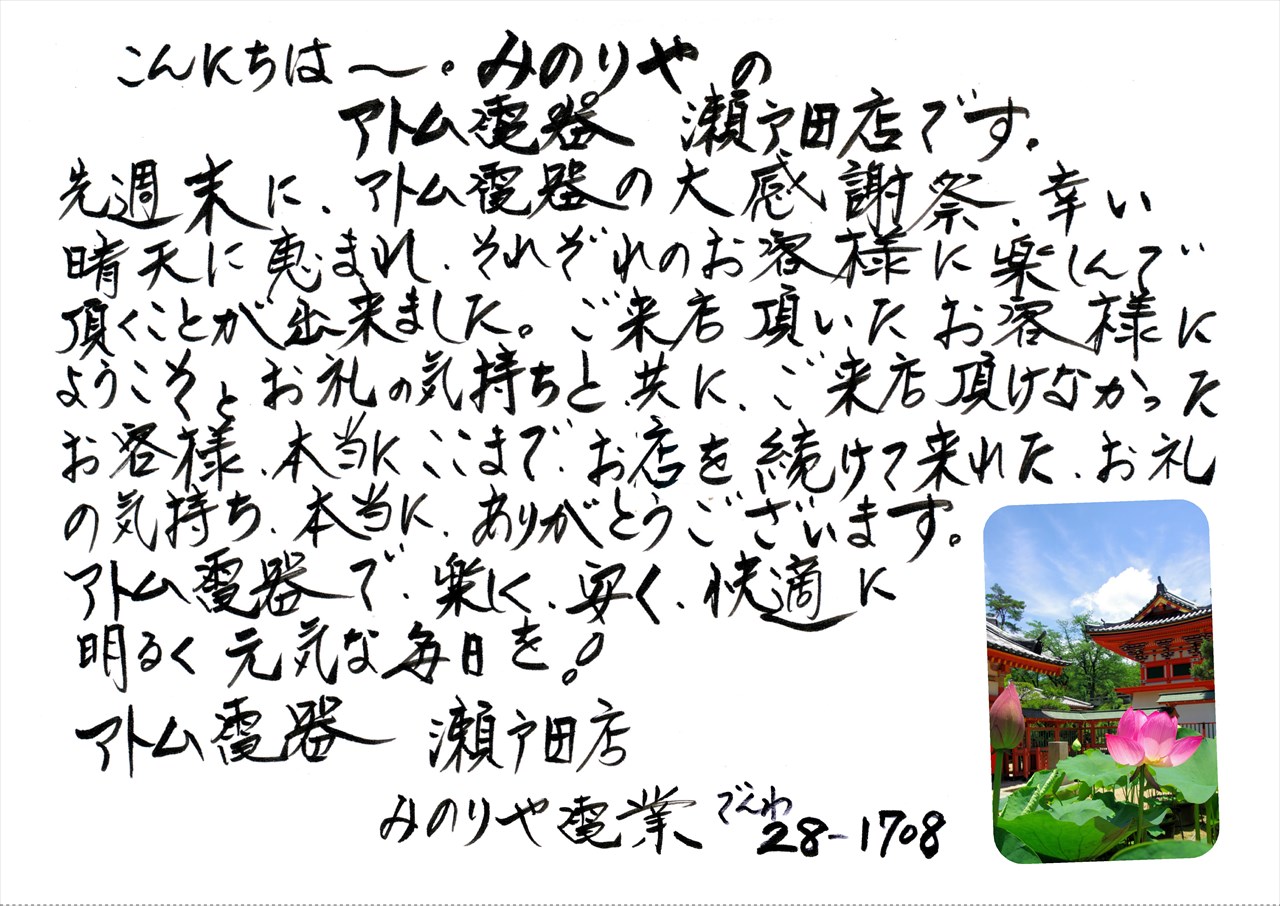 こんにちは〜。みのりやの
アトム電器 瀬戸田店です。
先週末に、アトム電器の大感謝祭、幸い
晴天に恵まれ、それぞれのお客様に楽しんで
頂くことが出来ました。ご来店頂いたお客様に
ようこそと、お礼の気持ちと共に、ご来店頂けなかった
お客様、本当にここまで、お店を続けて来れた、お礼
の気持ち、本当に、ありがとうございます。
アトム電器で、楽しく、安く、快適に
明るく元気な毎日を!
アトム電器 瀬戸田店
みのりや電業 でんわ 28-1708